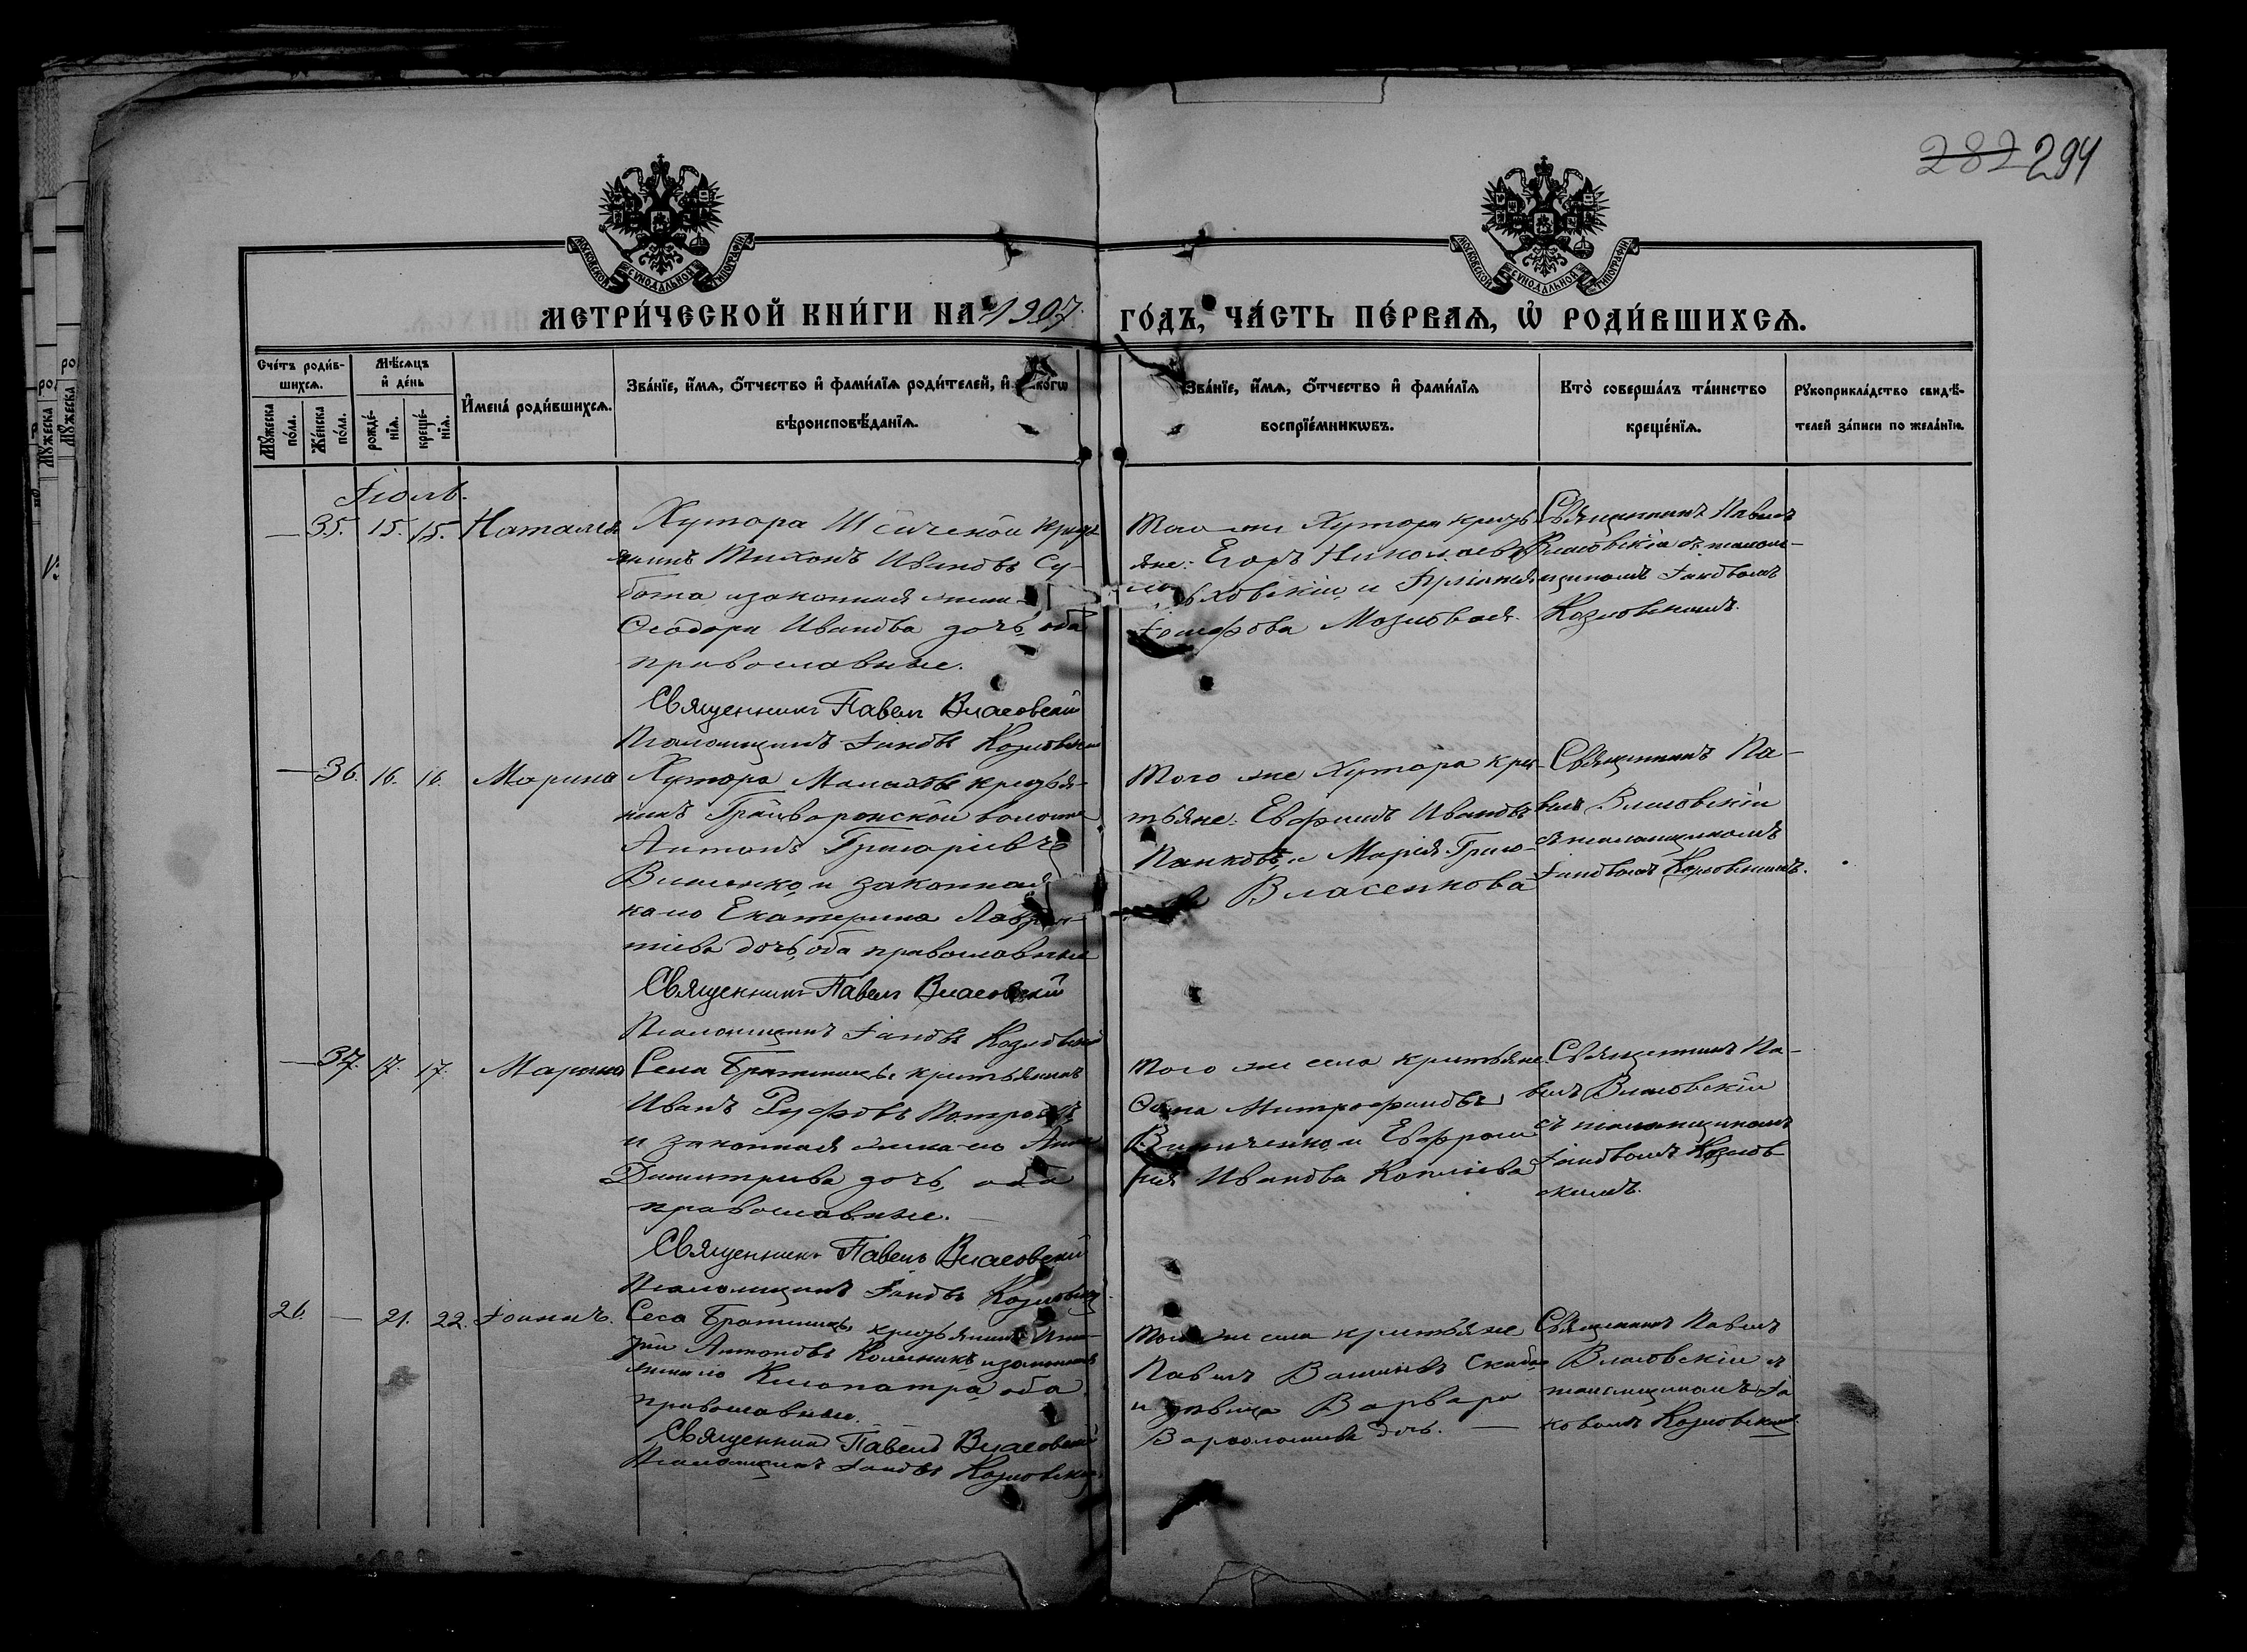 282 294
МОСКОВСКОЙ СѴНОДАЛЬНОЙ ТИПОГРАФІИ
МОСКОВСКОЙ СѴНОДАЛЬНОЙ ТИПОГРАФІИ
МЕТРИ́ЧЕСКОЙ КНИ́ГИ НА 1907 ГО́ДЪ, ЧА́СТЬ ПЕ́РВАѦ, Ѡ҆ РОДИ́ВШИХСѦ.
Сче́тъ роди́в-
шихсѧ.
Мꙋ́жеска по́ла.
Же́нска по́ла.
Мѣ́сѧцъ
и҆ де́нь
рожде́-
нїѧ.
креще́-
нїѧ.
И҆мена̀ роди́вшихсѧ.
Зва́нїе, и҆́мѧ, ѻ҆́тчество и҆ фами́лїѧ роди́телей, и҆
вѣроисповѣ́данїѧ.
Зва́нїе, и҆́мѧ, ѻ҆́тчество и҆ фами́лїѧ
воспрїе́мникѡвъ.
Кто̀ соверша́лъ та́инство
креще́нїѧ.
Рꙋкоприкла́дство свидѣ́-
телей за́писи по жела́нїю.
Іюль.
— 35. 15. 15. Наталія
Хутора
Тихонъ Ивановъ Су-
бота и законная жена
Ѳеодора Иванова дочь, оба
православные.
Священникъ Павелъ Власовскій
Псаломщикъ Іаковъ Козловскій
Того же Хутора кресть
яне: Егоръ Николаевъ
и Іуліанія
Іосифова Мозговая.
Священникъ Павелъ
Власовскій съ псалом-
щикомъ Іаковомъ
Козловскимъ.
— 36. 16. 16. Марина
Хутора Малаховъ крестья-
нинъ Грайворонской волости
Антонъ Григоріевъ
Власенко и законная
Екатерина Лаврен-
тіева дочь, оба православные
Священникъ Павелъ Власовскій
Псаломщикъ Іаковъ Козловскій
Того же Хутора крес-
тьяне: Евфимъ Ивановъ
Панковъ и Марія Григо-
Власенкова
Священникъ Па-
велъ Власовскій
съ псаломщикомъ
Іаковомъ Козловскимъ.
— 37. 17. 17. Марина
Села крестьянинъ
Иванъ Руфовъ
и законная жена его Анна
Димитріева дочь, оба
православные. —
Священникъ Павелъ Власовскій
Псаломщикъ Іаковъ Козловскій
Того же села крестьяне
Ѳома Митрофановъ
и Евфроси
нія Иванова
Священникъ Па-
велъ Власовскій
съ псаломщикомъ
Іаковомъ Козлов
скимъ.
26. — 21. 22. Іоаннъ.
Села крестьянинъ
Антоновъ Колесникъ и законная
жена его Клеопатра, оба
православные.
Священникъ Павелъ Власовскій
Псаломщикъ Іаковъ Козловскій
Того же села крестьяне
Павелъ
и дѣвица Варвара
Варѳоломеева дочь. —
Священникъ Павелъ
Власовскій съ
псаломщикомъ Іа
ковомъ Козловскимъ.